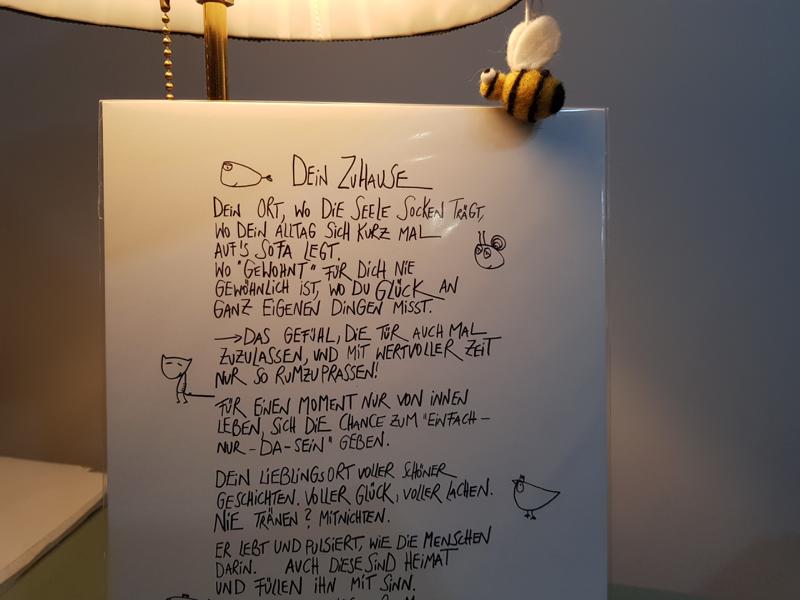 DEIN ZUHAUSE
DEIN ORT, WO DIE SEELE SOCKEN TRÄGT,
WO DEIN ALLTAG SICH KURZ MAL
AUF'S SOFA LEGT.
WO "GEWOHNT" FÜR DICH NIE
GEWÖHNLICH IST, WO DU GLÜCK AN
GANZ EIGENEN DINGEN MISST.
→DAS GEFÜHL, DIE TÜR AUCH MAL
ZUZULASSEN, UND MIT WERTVOLLER ZEIT
NUR SO RUMZUPRASSEN!
FÜR EINEN MOMENT NUR VON INNEN
LEBEN, SICH DIE CHANCE ZUM "EINFACH-
NUR-DA-SEIN" GEBEN.
DEIN LIEBLINGSORT VOLLER SCHÖNER
GESCHICHTEN. VOLLER GLÜCK, VOLLER LACHEN.
NIE TRÄNEN? MITNICHTEN.
ER LEBT UND PULSIERT, WIE DIE MENSCHEN
DARIN. AUCH DIESE SIND HEIMAT
UND FÜLLEN IHN MIT SINN.